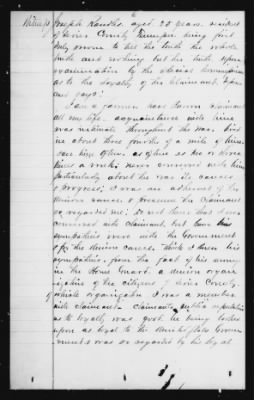 Witness Joseph Randle, aged 28 years, resident
of Giles County Tennessee being first
duly sworn to tell the truth the whole
truth and nothing but the truth, upon
examination by the special Commissioner
as to the loyalty of the Claimant,
and says:
I am a farmer have known claimant
all my life. acquaintance with him
was intimate throughout the war,
me about three fourths of a mile of him.
saw him often, as often as two or three
times a week; have conversed with him
particularly about the war its causes
& progress; I was an adherent of the
Union cause & presume the Claimant
so regarded me; do not know that I ever
conversed with claimant, but know his
sympathies were with the Government
& for the Union cause. think I know his
sympathies, from the fact of his being
in the Home Guard. a Union organi-
zation of the citizens of County,
of which organization I was a member
with claimant. Claimants public reputation
as to loyalty was good, he being looked
upon as loyal to the United States Govern-
ment & was so regarded by his loyal